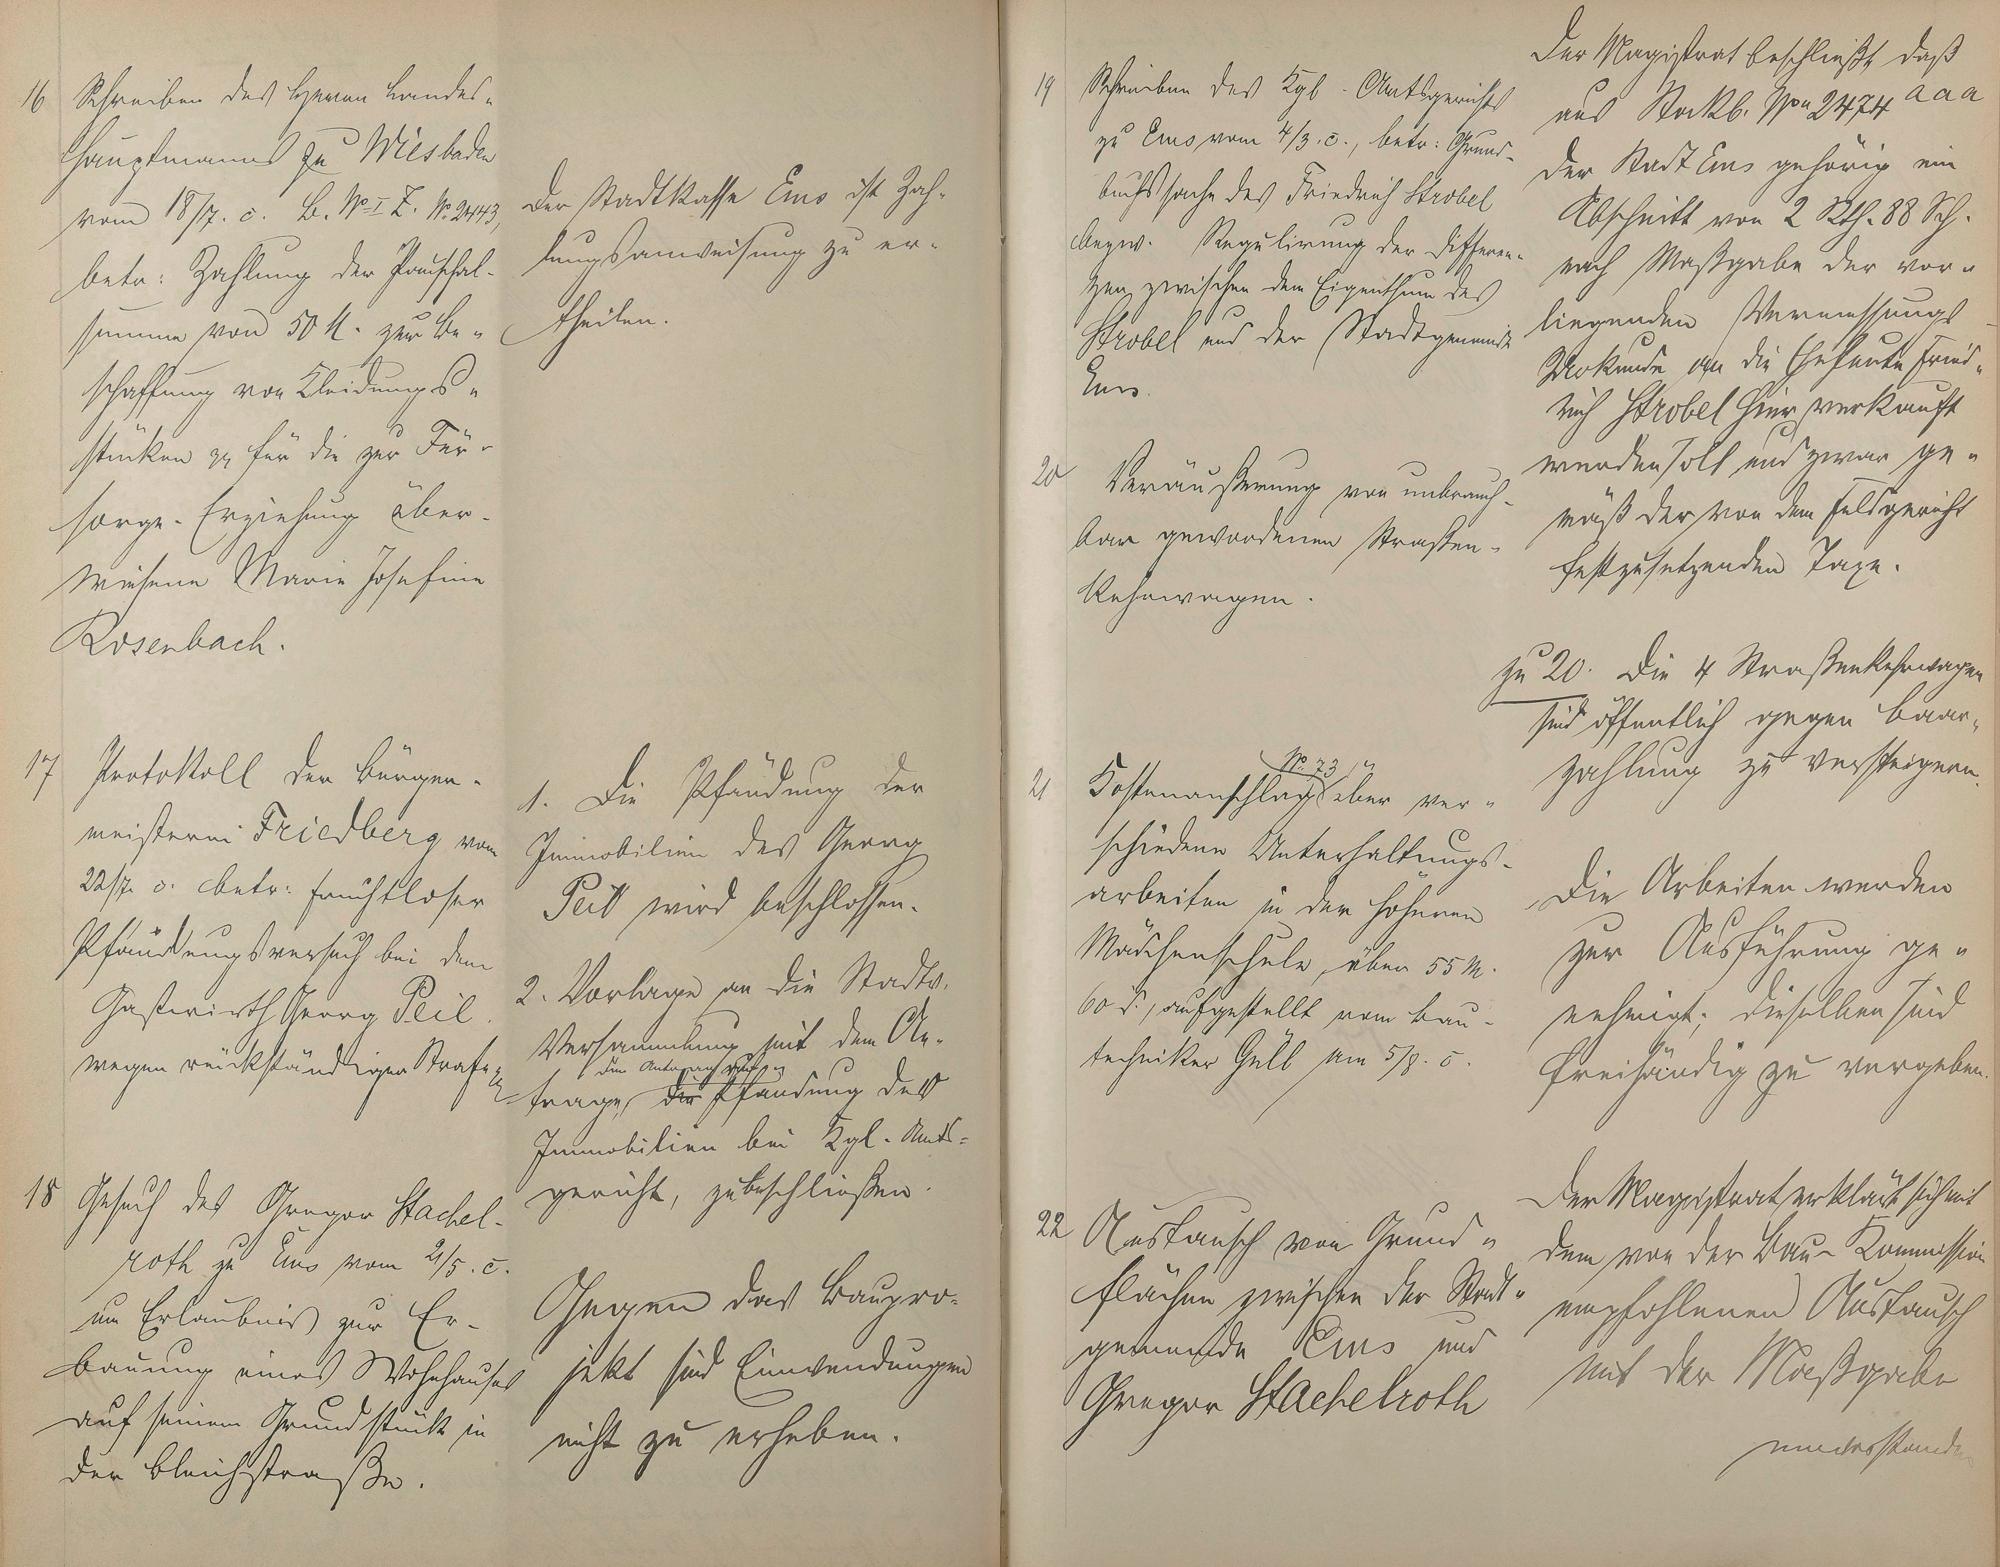 16 Schreiben des Herrn Landes-
hauptmanns zu Wiesbaden
vom 18/7. c. B. No I Z. No 2443,
betr: Zahlung der Pauschal-
summe von 50 M. zur Be-
schaffung von Kleidungs-
stücken pp für die zur Für-
sorge-Erziehung über-
wiesene Marie Josefine
Rosenbach.
Der Stadtkasse Ems ist Zah-
lungsanweisung zu er-
theilen.
17 Protokoll der Bürger-
meisterei Friedberg vom
22/7. c. betr: fruchtloser
Pfändungsversuch bei dem
Gastwirth Georg Peil
wegen rückständiger Straf-
1. Die Pfändung der
Immobilien des Georg
Peil wird beschlossen.
2. Vorlage an die Stadtv.
Versammlung mit dem An-
den Antrag auf
trage, die Pfändung des
Immobilien bei Kgl. Amts-
gericht, zu beschließen.
18 Gesuch des Gregor Stachel-
roth zu Ems vom 21/5. c.
um Erlaubnis zur Er-
bauung eines Wohnhauses
auf seinem Grundstück in
der Bleichstraße.
Gegen das Baupro-
jekt sind Einwendungen
nicht zu erheben.
19 Schreiben des Kgl. Amtsgerichts
zu Ems vom 4/3. c., betr: Grund-
buchssache des Friedrich Strobel
bezw. Regulirung der Differen-
zen zwischen dem Eigenthum des
Strobel und der Stadtgemeinde
Ems.
Der Magistrat beschließt, daß
aus Stockb. No 2474 a a a
der Stadt Ems gehörig ein
Abschnitt von 2 Rth. 88 Sch.
nach Maßgabe der vor-
liegenden Vermessungs-
Urkunde an die Eheleute Fried-
rich Strobel hier verkauft
werden soll und zwar ge-
mäß der von dem Feldgericht
festzusetzenden Taxe.
20 Veräußerung von unbrauch-
bar gewordenen Straßen-
kehrwagen.
zu 20. Die 4 Straßenkehrwagen
sind öffentlich gegen Baar-
zahlung zu versteigern.
No 73
21 Kostenanschlag über ver-
schiedene Unterhaltungs-
arbeiten in der höheren
Mädchenschule, über 55 M.
60 d., aufgestellt vom Bau-
techniker Güll am 5/8. c.
Die Arbeiten werden
zur Ausführung ge-
nehmigt; dieselben sind
freihändig zu vergeben.
22 Austausch von Grund-
flächen zwischen der Stadt-
gemeinde Ems und
Gregor Stachelroth
Der Magistrat erklärt sich mit
dem von der Bau-Kommission
empfohlenen Austausch
mit der Maßgabe
einverstanden